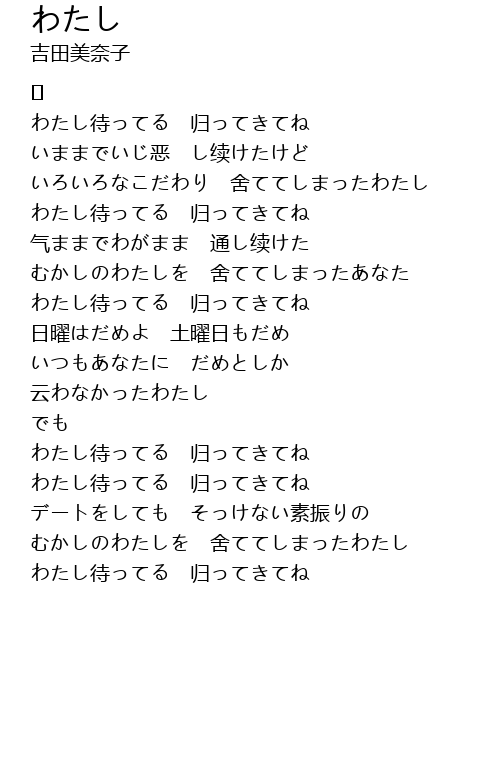 わたし
吉田美奈子
[]
わたし待ってる　归ってきてね
いままでいじ恶　し续けたけど
いろいろなこだわり　舍ててしまったわたし
わたし待ってる　归ってきてね
气ままでわがまま　通し续けた
むかしのわたしを　舍ててしまったあなた
わたし待ってる　归ってきてね
日曜はだめよ　土曜日もだめ
いつもあなたに　だめとしか
云わなかったわたし
でも
わたし待ってる　归ってきてね
わたし待ってる　归ってきてね
デートをしても　そっけない素振りの
むかしのわたしを　舍ててしまったわたし
わたし待ってる　归ってきてね